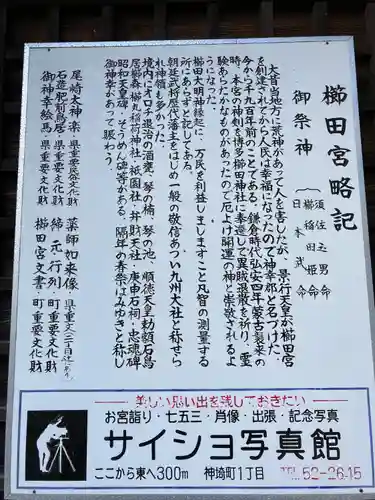 櫛田宮略記
御祭神
須佐之男命
櫛稲田姫命
日本武命
大昔当地方に荒神があって人を害したが、景行天皇が櫛田宮
を創建されてから人民は幸福になったので神幸郡と名づけた。
今から千九百年前のことである。鎌倉時代弘安四年蒙古襲来の
時、本宮の神剣を博多櫛田神社に奉遷して異賊退散を祈り、霊
験あったかなものがあったので厄よけ開運の神と崇敬されるよ
うになった。
櫛田大明神縁起に、万民を利益しましますこと凡智の測量する
所にあらずと記してある。
朝廷武将歴代藩主をはじめ一般の敬信あつい九州大社と称せら
れ神領も多かった。
境内にオロチ退治の酒甕、琴の楠、琴の池、順徳天皇勅額石鳥
居櫛森、櫛丸稲荷神社、祇園社、弁財天社、庚申石祠、忠魂碑
昭和天皇碑、そうめん碑等がある。隔年の春祭はみゆきと称し
御神幸があって賑わう。
尾崎太神楽・県重要民俗文化財
石造肥前鳥居・県重要文化財
御神幸絵馬・県重要文化財
薬師如来像
締元・行列・町重要文化財
櫛田宮文書・町重要文化財
美しい思い出を残しておきたい
お宮詣り・七五三・肖像・出張・記念写真
サイショ写真館
ここから東へ300m 神埼町1丁目 TEL 52-2615